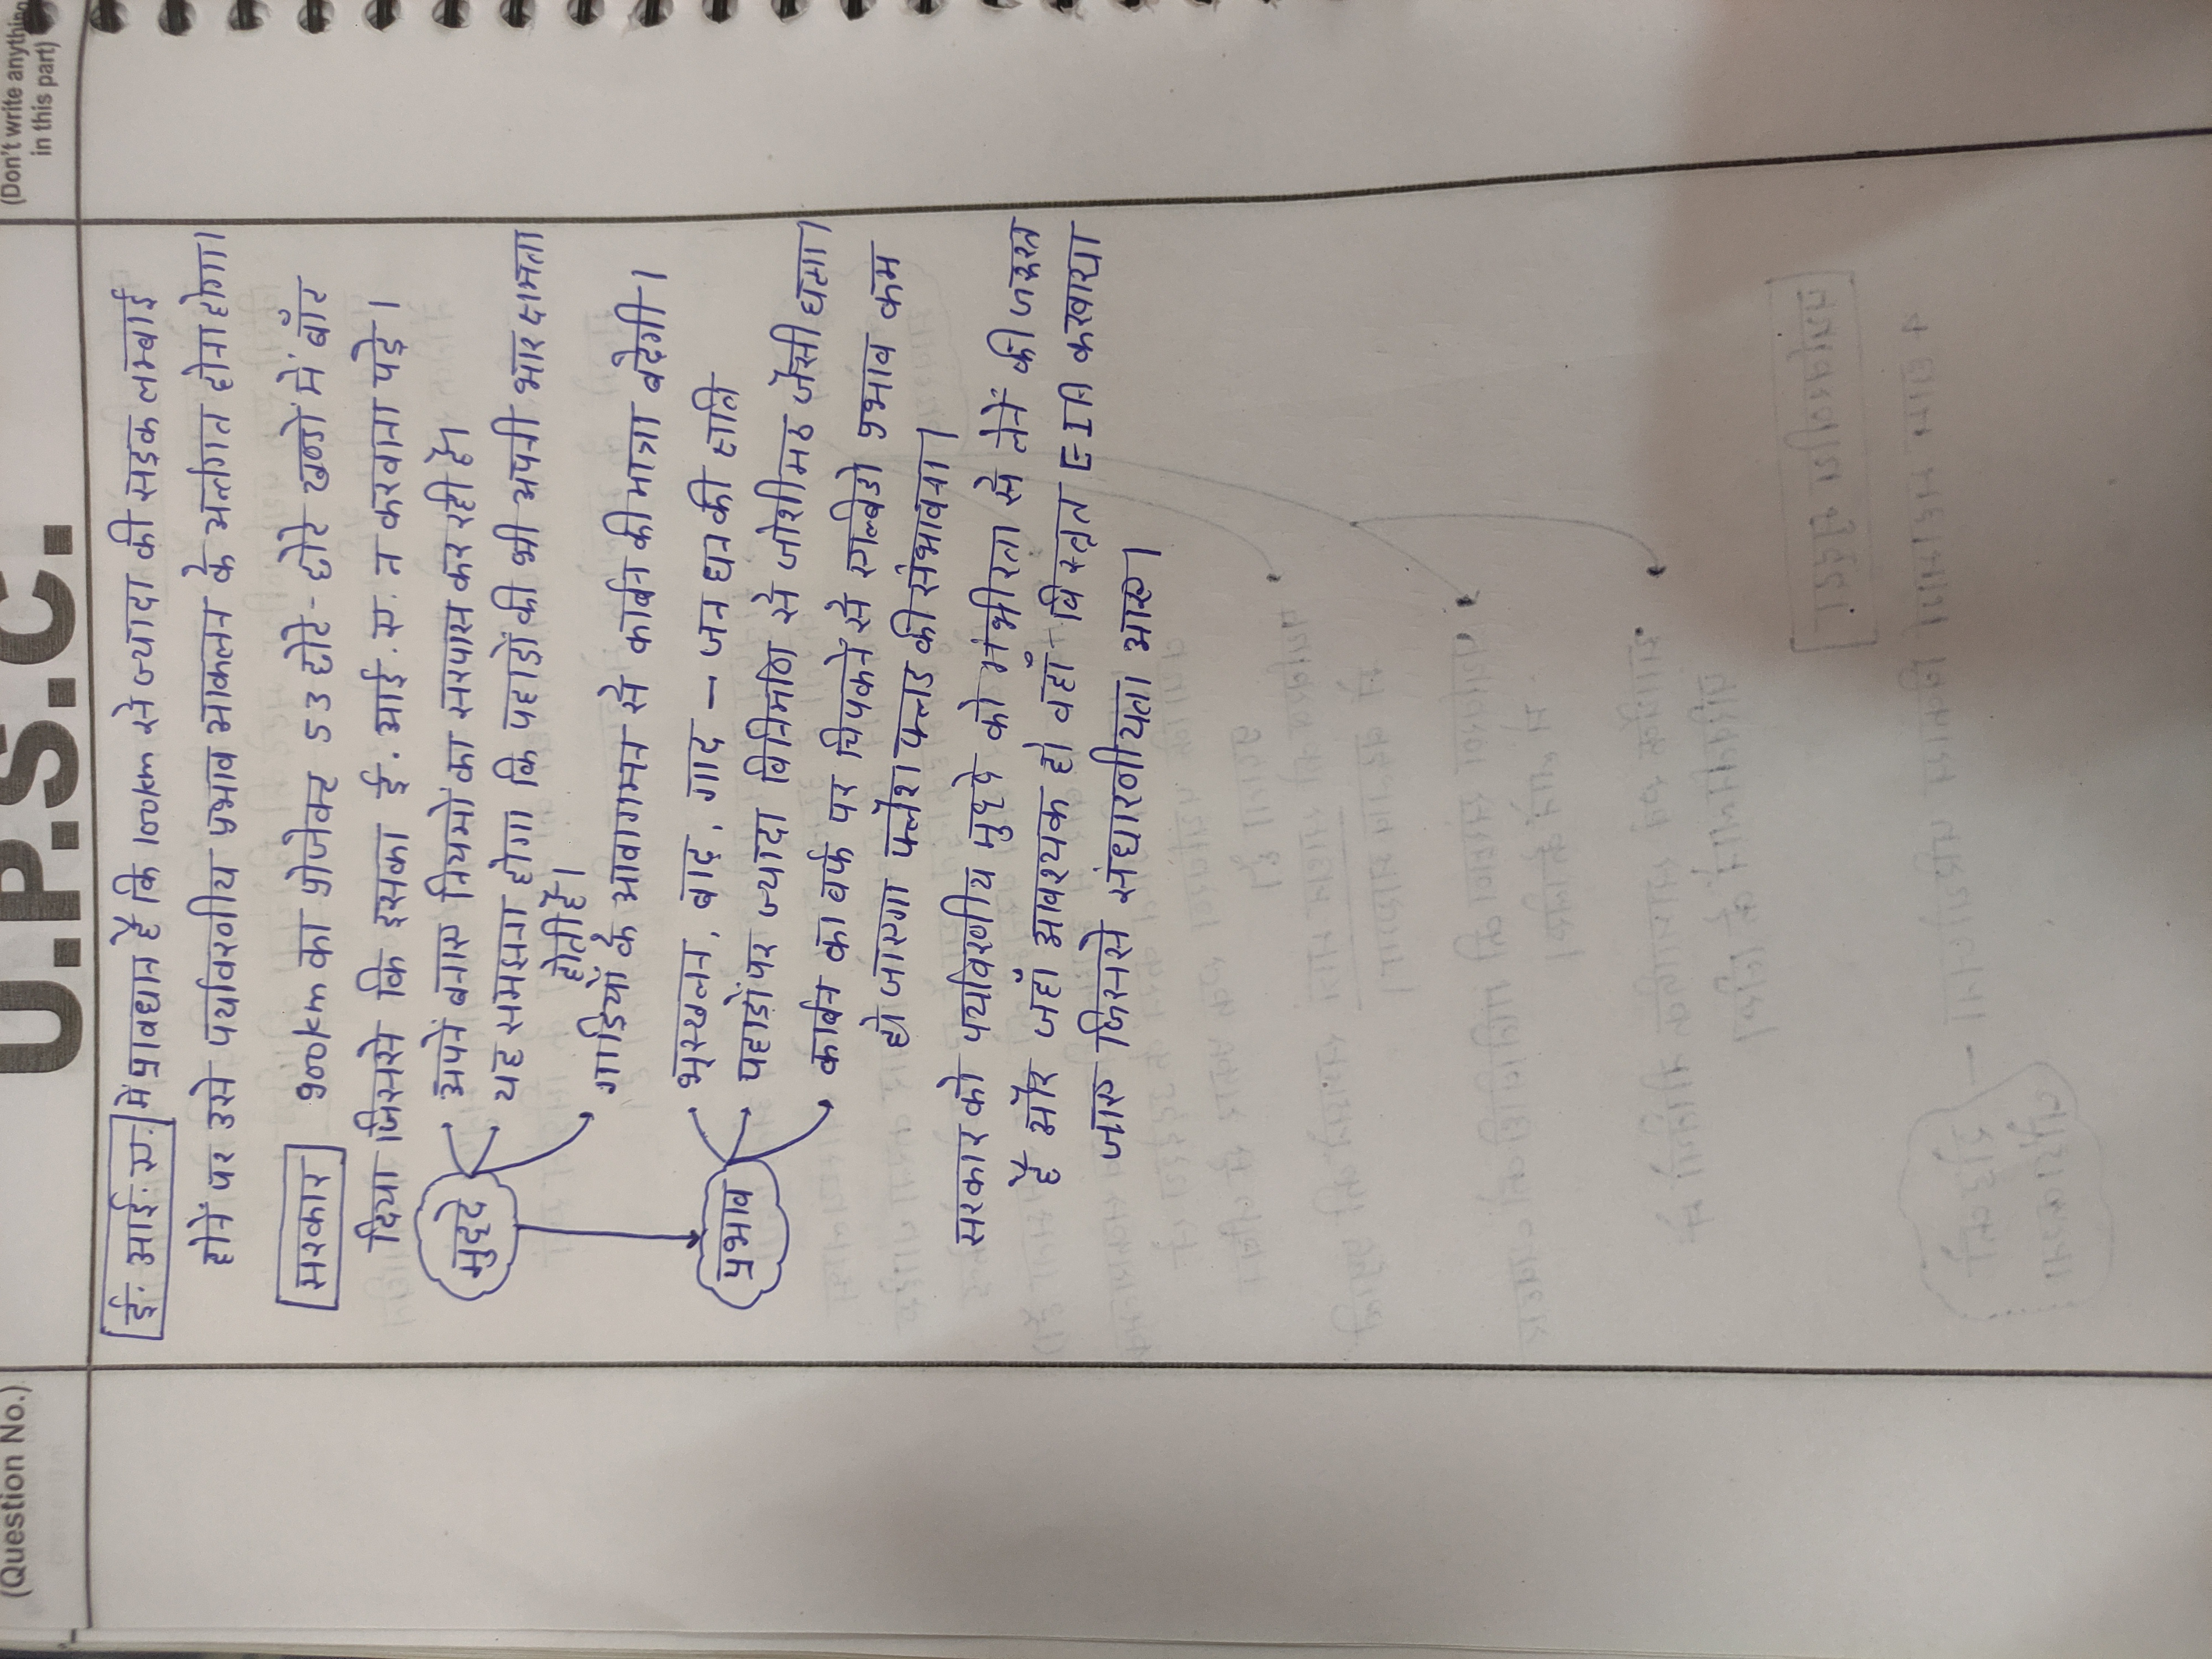 (Question No.)
U.P.S.C.
(Don't write anything
in this part)
ई. आई. ए. में प्रावधान है कि 100km से ज्यादा की सड़क लम्बाई
होनें पर उसे पर्यावरणीय प्रभाव आकलन के अर्न्तगत होना होगा।
सरकार 900km का प्रोजेक्ट 53 छोटे-छोटे खण्डों में बाँट
दिया जिससे कि इसका ई. आई. ए. न करवाना पड़े।
मुद्दे
अपनें बनाए नियमों का सरपास कर रही है।
यह समझना होगा कि पहाडों की भी अपनी भार क्षमता
होती है।
गाडियों के आवागमन से कार्बन की मात्रा बढेगी।
प्रभाव
भूस्खलन, बाढ़, गाद - जन धन की क्षति
पहाडों पर ज्यादा विनिर्माण से जोशीमठ जैसी घटना।
कार्बन का बर्फ पर चिपकनें से एल्बेडो प्रभाव कम
हो जाएगा फ्लैश फ्लड की संभावना।
सरकार को पर्यावरणीय मुद्दे को गंभीरता से लेनें की जरूरत
है और जहाँ आवश्यक हो वहाँ विस्तृत EIA करवाया
जाए जिससे संधारणीयता आए।